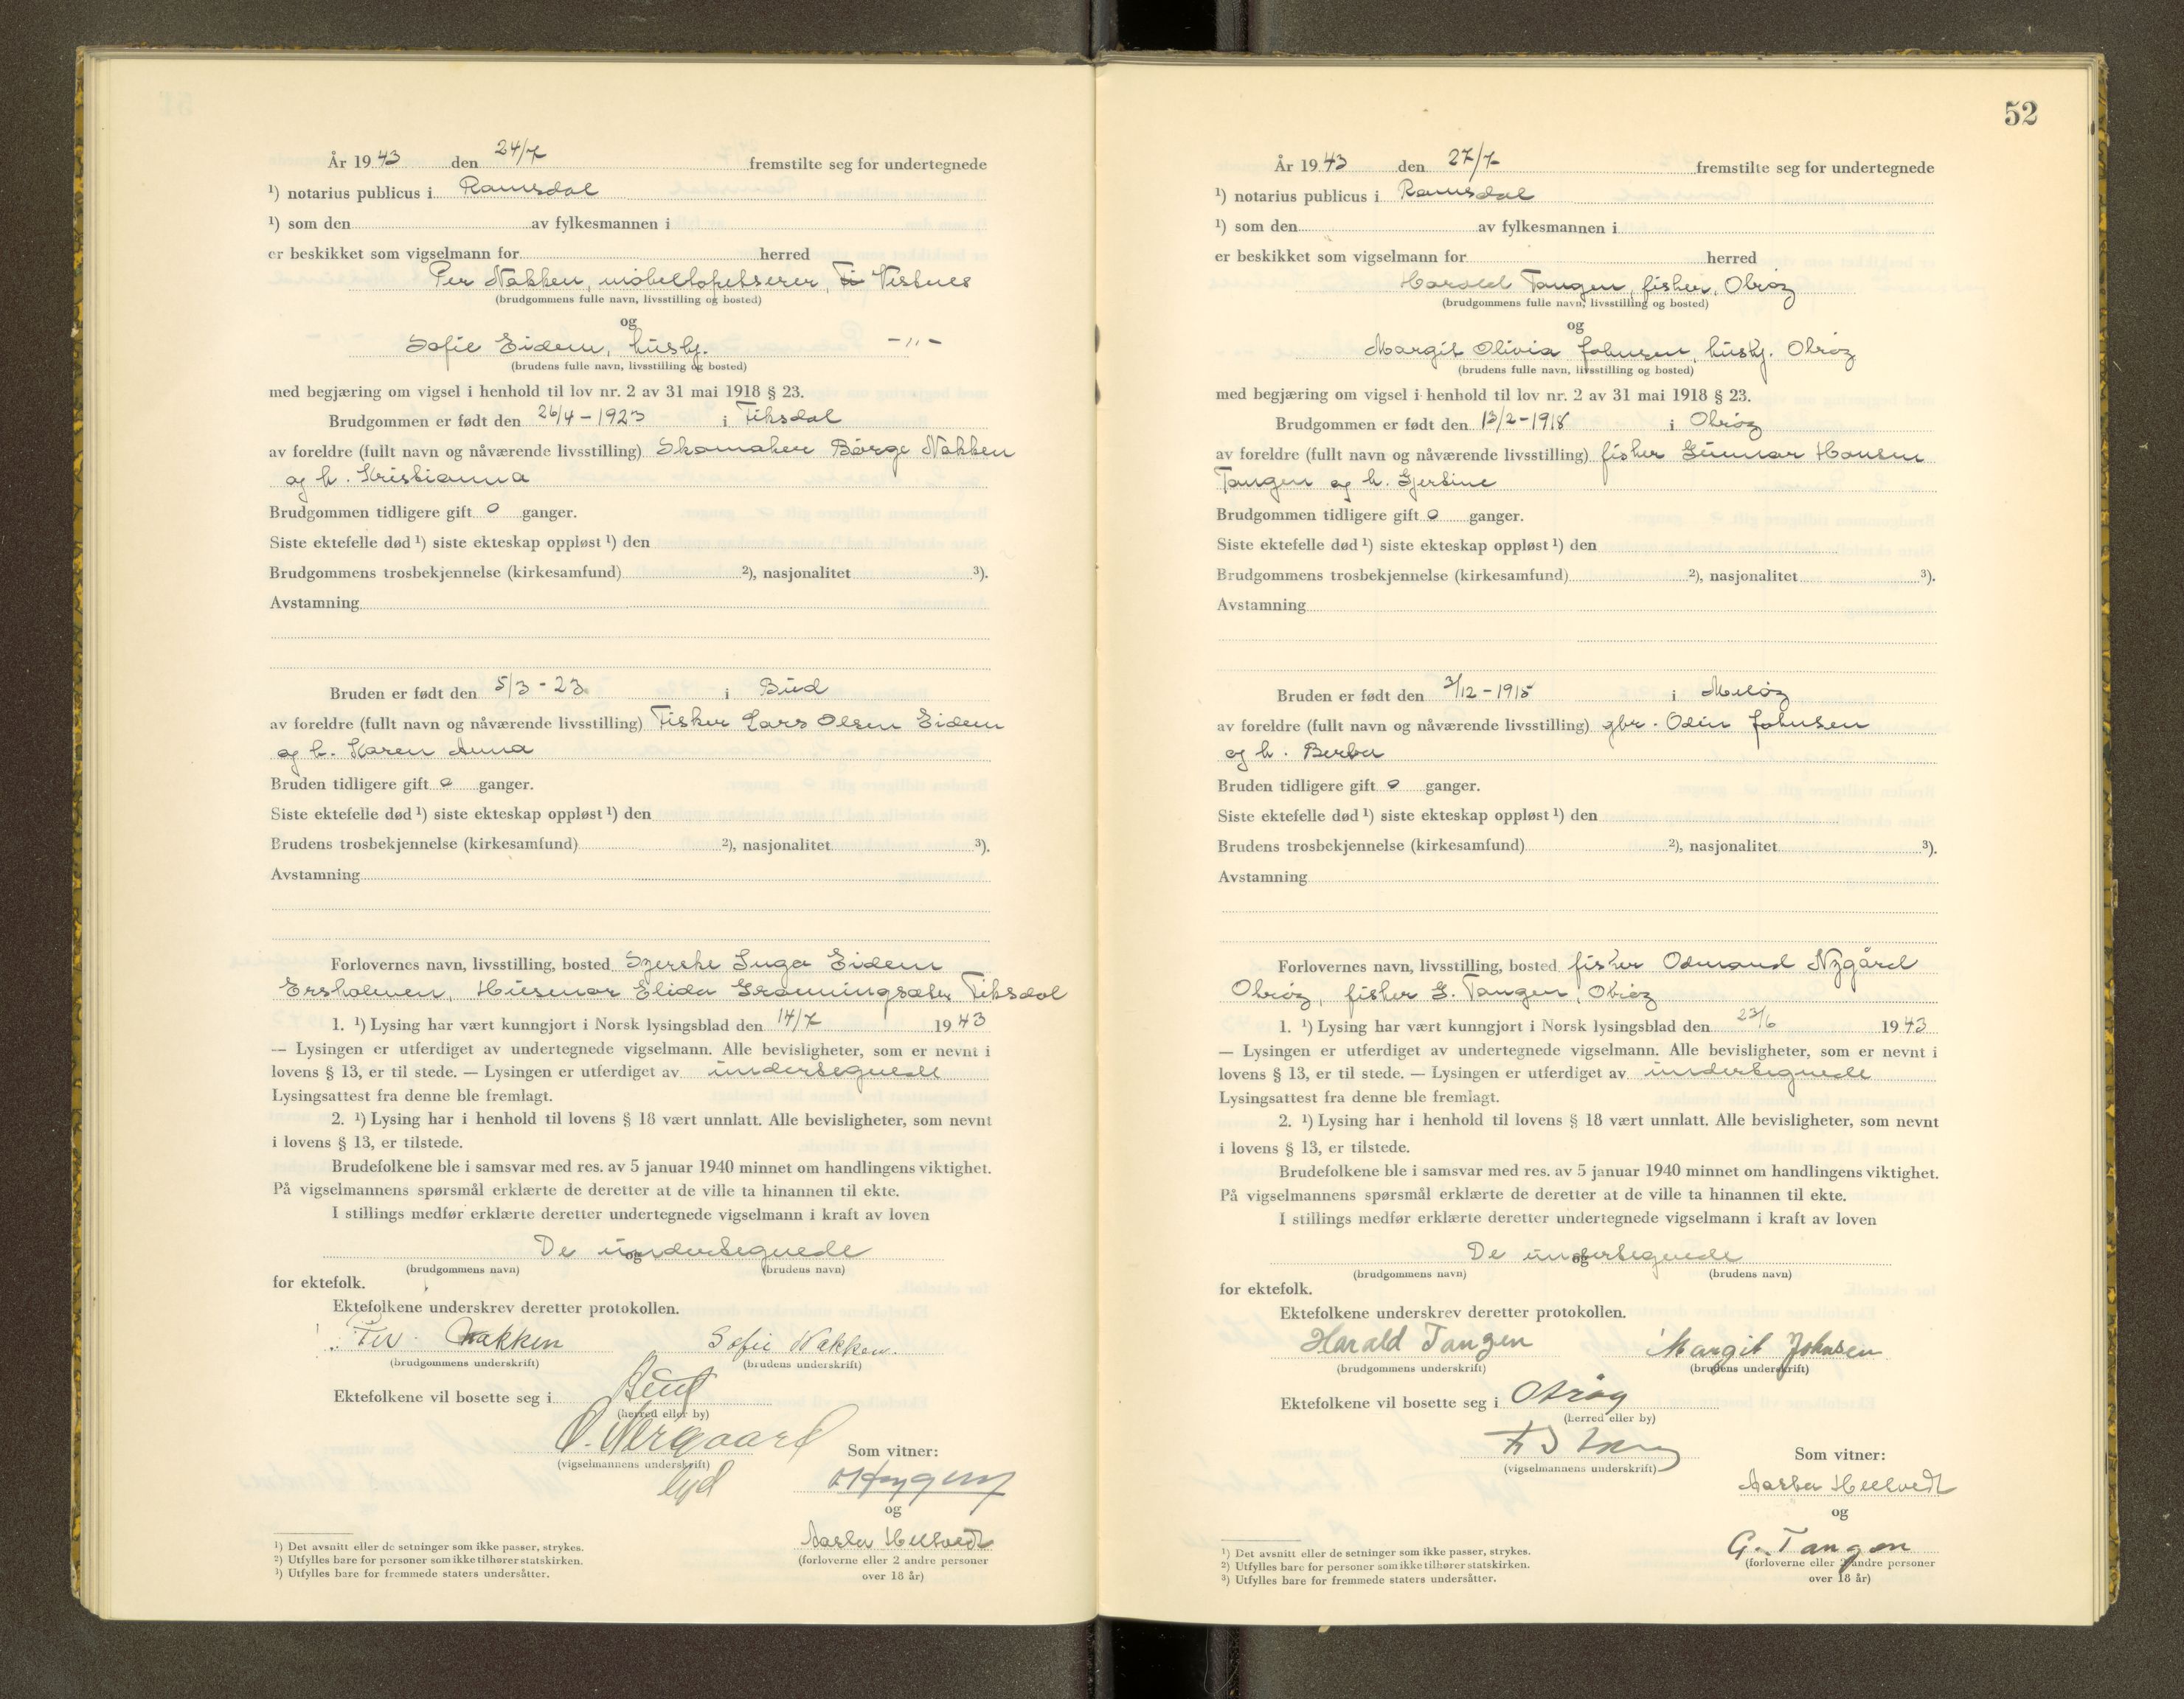 År 1943 den 24/7 fremstilte seg for undertegnede
¹) notarius publicus i Romsdal
¹) som den av fylkesmannen i
er beskikket som vigselmann for herred
Per Nakken, møbeltapetserer, Vestnes
(brudgommens fulle navn, livsstilling og bosted)
og
Sofie Eidem, hushj. -"-
(brudens fulle navn, livsstilling og bosted)
med begjæring om vigsel i henhold til lov nr. 2 av 31 mai 1918 § 23.
Brudgommen er født den 26/4-1923 i Fiksdal
av foreldre (fullt navn og nåværende livsstilling) Skomaker Børge Nakken
og h. Kristianna
Brudgommen tidligere gift 0 ganger.
Siste ektefelle død ¹) siste ekteskap oppløst ¹) den
Brudgommens trosbekjennelse (kirkesamfund) ²), nasjonalitet ³).
Avstamning
Bruden er født den 5/3-23 i Bud
av foreldre (fullt navn og nåværende livsstilling) Fisker Lars Olsen Eidem
og h. Karen Anna
Bruden tidligere gift 0 ganger.
Siste ektefelle død ¹) siste ekteskap oppløst ¹) den
Brudens trosbekjennelse (kirkesamfund) ²), nasjonalitet ³).
Avstamning
Forlovernes navn, livsstilling, bosted Inga Eidem
Husmor Elida Fiksdal
1. ¹) Lysing har vært kunngjort i Norsk lysingsblad den 14/7 1943
— Lysingen er utferdiget av undertegnede vigselmann. Alle bevisligheter, som er nevnt i
lovens § 13, er til stede. — Lysingen er utferdiget av undertegnede
Lysingsattest fra denne ble fremlagt.
2. ¹) Lysing har i henhold til lovens § 18 vært unnlatt. Alle bevisligheter, som nevnt
i lovens § 13, er tilstede.
Brudefolkene ble i samsvar med res. av 5 januar 1940 minnet om handlingens viktighet.
På vigselmannens spørsmål erklærte de deretter at de ville ta hinannen til ekte.
I stillings medfør erklærte deretter undertegnede vigselmann i kraft av loven
De undertegnede
og
(brudgommens navn) (brudens navn)
for ektefolk.
Ektefolkene underskrev deretter protokollen.
Per Nakken Sofie Nakken.
(brudgommens underskrift) (brudens underskrift)
Ektefolkene vil bosette seg i Bud
(herred eller by)
Som vitner:
(vigselmannens underskrift)
og
Hellvedt
¹) Det avsnitt eller de setninger som ikke passer, strykes.
²) Utfylles bare for personer som ikke tilhører statskirken.
³) Utfylles bare for fremmede staters undersåtter.
(forloverne eller 2 andre personer
over 18 år)
52
År 1943 den 27/7 fremstilte seg for undertegnede
¹) notarius publicus i Romsdal
¹) som den av fylkesmannen i
er beskikket som vigselmann for herred
Harald Tangen, fisker, Otrøy
(brudgommens fulle navn, livsstilling og bosted)
og
Margit Olivia Johnsen, hushj. Otrøy
(brudens fulle navn, livsstilling og bosted)
med begjæring om vigsel i henhold til lov nr. 2 av 31 mai 1918 § 23.
Brudgommen er født den 13/2-1918 i Otrøy
av foreldre (fullt navn og nåværende livsstilling) fisker Gunnar Hansen
Tangen og h. Gjertine
Brudgommen tidligere gift 0 ganger.
Siste ektefelle død ¹) siste ekteskap oppløst ¹) den
Brudgommens trosbekjennelse (kirkesamfund) ²), nasjonalitet ³).
Avstamning
Bruden er født den 3/12-1915 i Meløy
av foreldre (fullt navn og nåværende livsstilling) gbr. Odin Johnsen
og h. Berta
Bruden tidligere gift 0 ganger.
Siste ektefelle død ¹) siste ekteskap oppløst ¹) den
Brudens trosbekjennelse (kirkesamfund) ²), nasjonalitet ³).
Avstamning
Forlovernes navn, livsstilling, bosted fisker Odmund Nygård
Otrøy, fisker G. Tangen, Otrøy
1. ¹) Lysing har vært kunngjort i Norsk lysingsblad den 23/6 1943
— Lysingen er utferdiget av undertegnede vigselmann. Alle bevisligheter, som er nevnt i
lovens § 13, er til stede. — Lysingen er utferdiget av undertegnede
Lysingsattest fra denne ble fremlagt.
2. ¹) Lysing har i henhold til lovens § 18 vært unnlatt. Alle bevisligheter, som nevnt
i lovens § 13, er tilstede.
Brudefolkene ble i samsvar med res. av 5 januar 1940 minnet om handlingens viktighet.
På vigselmannens spørsmål erklærte de deretter at de ville ta hinannen til ekte.
I stillings medfør erklærte deretter undertegnede vigselmann i kraft av loven
De undertegnede
og
(brudgommens navn) (brudens navn)
for ektefolk.
Ektefolkene underskrev deretter protokollen.
Harald Tangen Margit Johnsen
(brudgommens underskrift) (brudens underskrift)
Ektefolkene vil bosette seg i Otrøy
(herred eller by)
Som vitner:
(vigselmannens underskrift)
Hellvedt
og
G. Tangen
¹) Det avsnitt eller de setninger som ikke passer, strykes.
²) Utfylles bare for personer som ikke tilhører statskirken.
³) Utfylles bare for fremmede staters undersåtter.
(forloverne eller 2 andre personer
over 18 år)